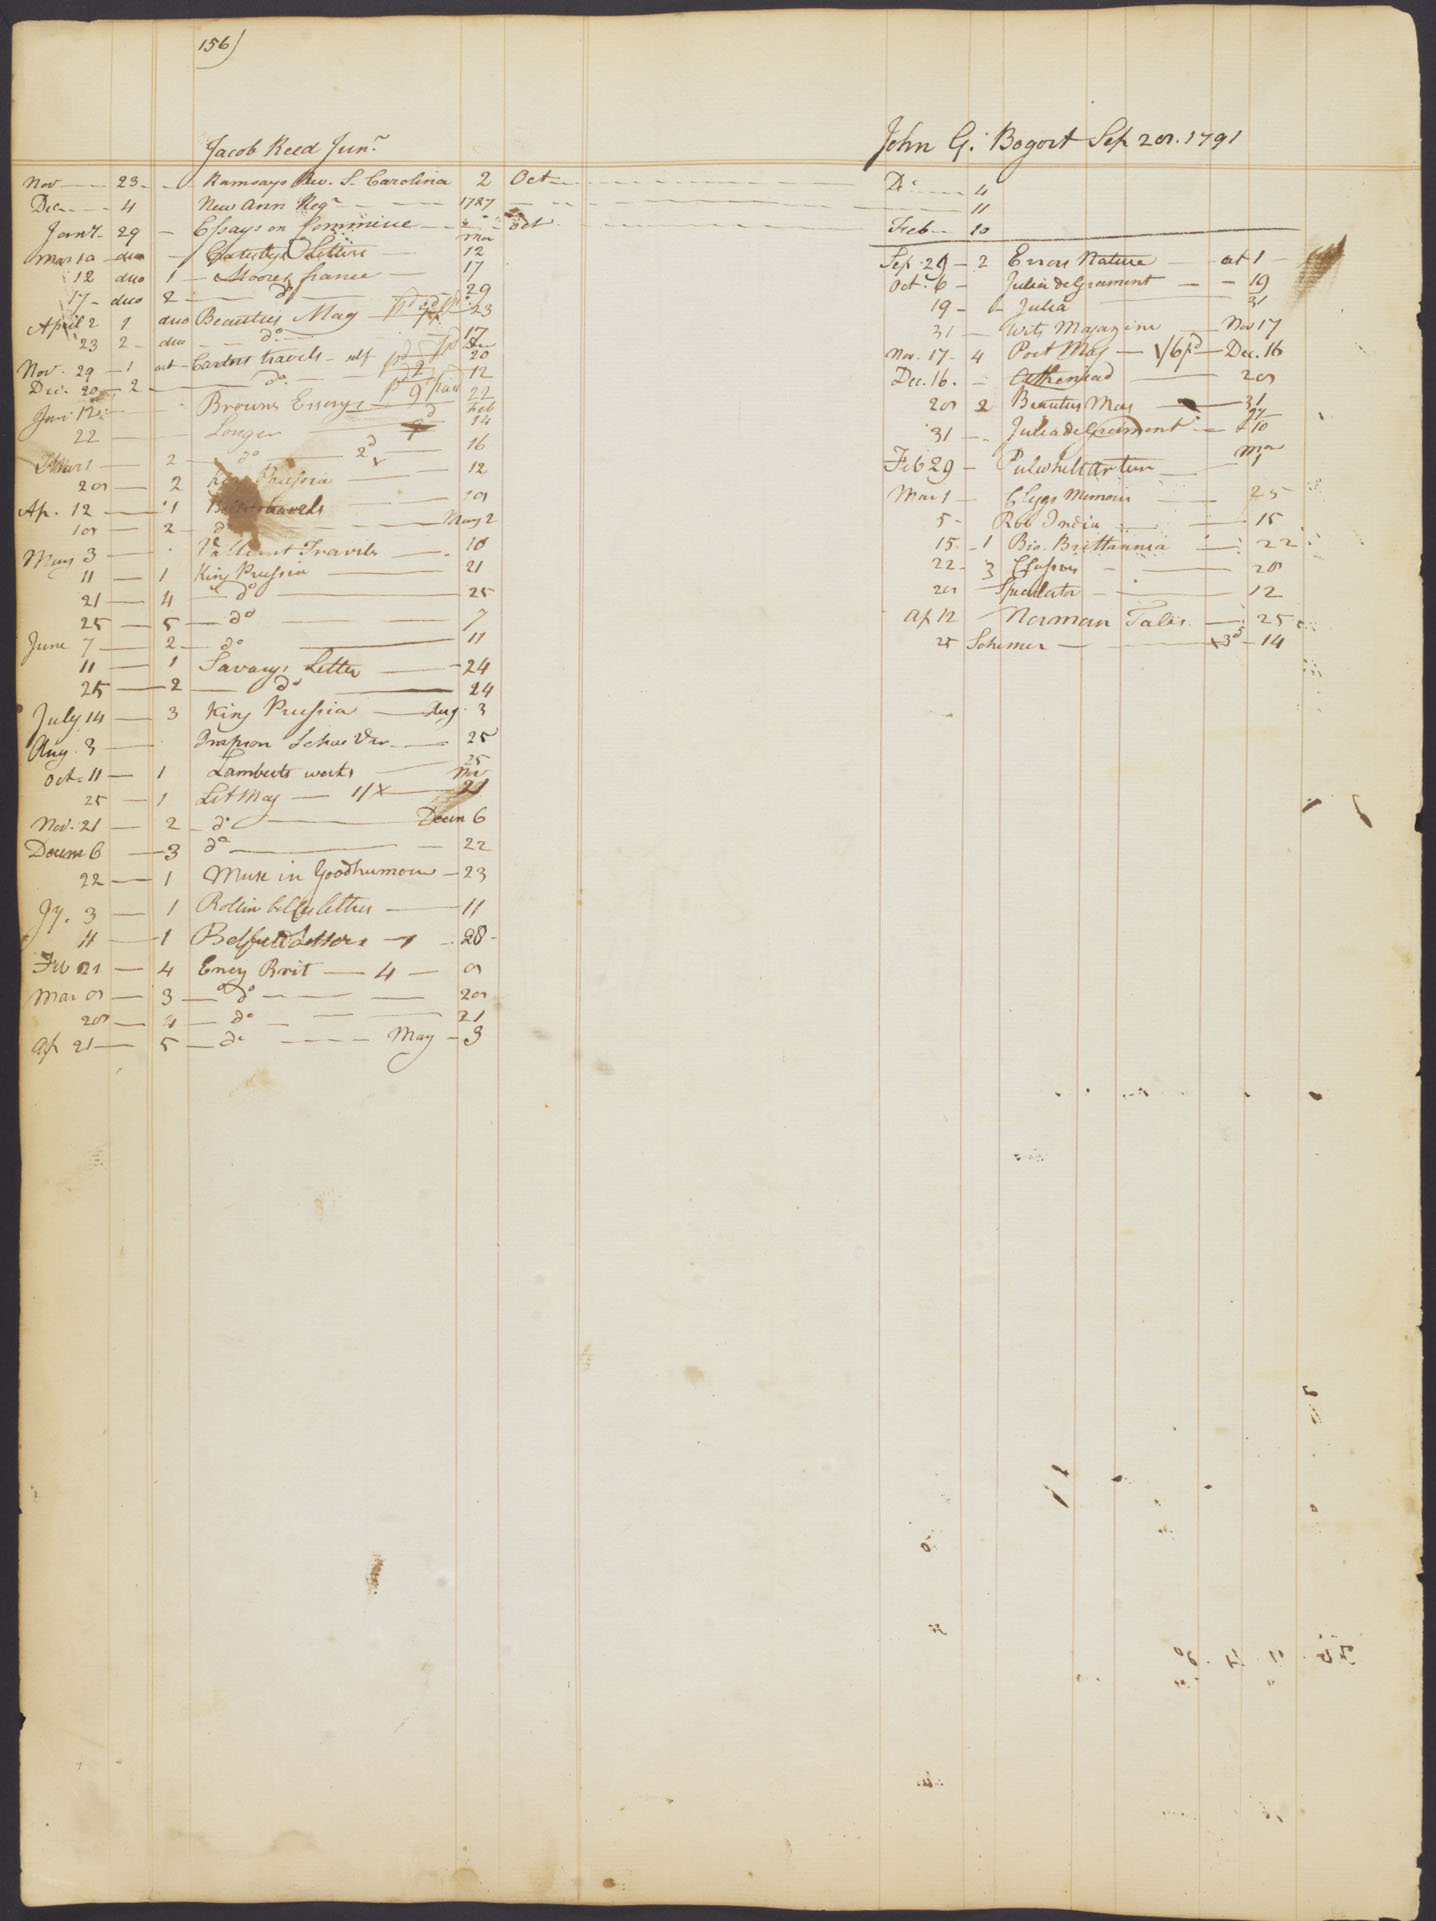 156)
Jacob Reed Junr
Nov — 23 — Ramsays Rev. S. Carolina 2 Oct — Dr — 4
Dec — 4 New Ann Regr — 1787 — 11
Jany. 29 — Essays on — oct — Feb — 10
Mar 10 duo — Letters — Mar 12
12 duo 1 — Moores france 17
17 — duo 2 — do — 29
April 2 1 duo Beauties Mag — 23
23 2 — duo — do — 17
Nov. 29 — 1 oct — travels — self 20
Dec. 20 — 2 — do. — 12
Jan 12 — Browns Essays 22
22 — Feb 14
2 — do — 2d 16
20 — 2 Prussia 12
Ap. 12 — 1 travels
10 — 2 — d — May 2
May 3 — Valliant Travels — 10
11 — 1 King Prussia — 21
21 — 4 — do — 25
25 — 5 — do — 7
June 7 — 2 — do — 11
11 — 1 Savarys Letter — 24
25 — 2 — do — 24
July 14 — 3 King Prussia — Aug. 3
Aug. 3 — 25
Oct. 11 — 1 Lamberts works 25
25 — 1 Lit Mag — 1/x — Nov 21
Nov. 21 — 2 — do — Decem 6
Decem 6 — 3 do — 22
22 — 1 Muse in Goodhumour — 23
Jy. 3 — 1 Rollin belles lettres — 11
11 — 1 Letters — 28
Feb 21 — 4 Ency Brit — 4 —
Mar — 3 — do — 20
20 — 4 — do — 21
Ap 21 — 5 — do — May — 3
John G. Bogort Sep 20. 1791
Sep. 29 — 2 Errors Nature — oct 1
Octr. 6 — Julia de Gramont — 19
19 — Julia 31
31 — Wits Magazine — Nov 17
Nov. 17 — 4 Poet Mag — 1/6 pd — Dec. 16
Dec. 16. — 20
20 2 Beauties Mag — 31
31 — Julia de Gramont — 10
Feb 29 — Mar 1
Mar 1 — Memoirs — 25
5 — Rob India — 15
15 — 1 Bio. Brittannia — 22
22 — 3 — 20
20 Spectator — 12
Ap 12 — Norman Tales — 25
25 Schemer — x3d — 14